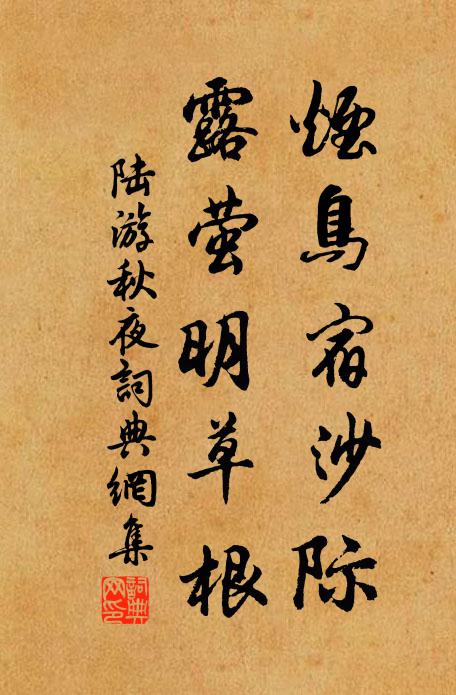 烟鸟宿沙际
露萤明草根
陆游秋夜詞典網集
詞典网印